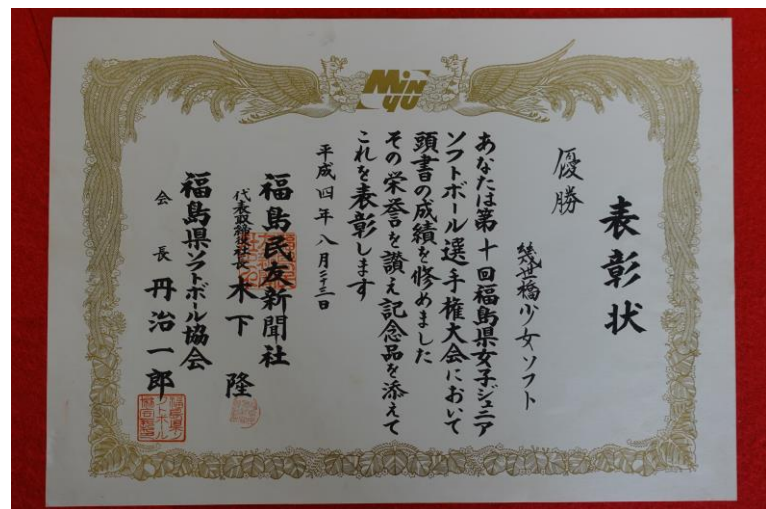 MiNYU
表彰状
優勝
幾世橋少女ソフト
あなたは第十回福島県女子ジュニア
ソフトボール選手権大会において
頭書の成績を修めました
その栄誉を讃え記念品を添えて
これを表彰します
平成四年八月二十三日
福島民友新聞社
代表取締役社長 木下隆
福島県ソフトボール協会
会長 丹治一郎